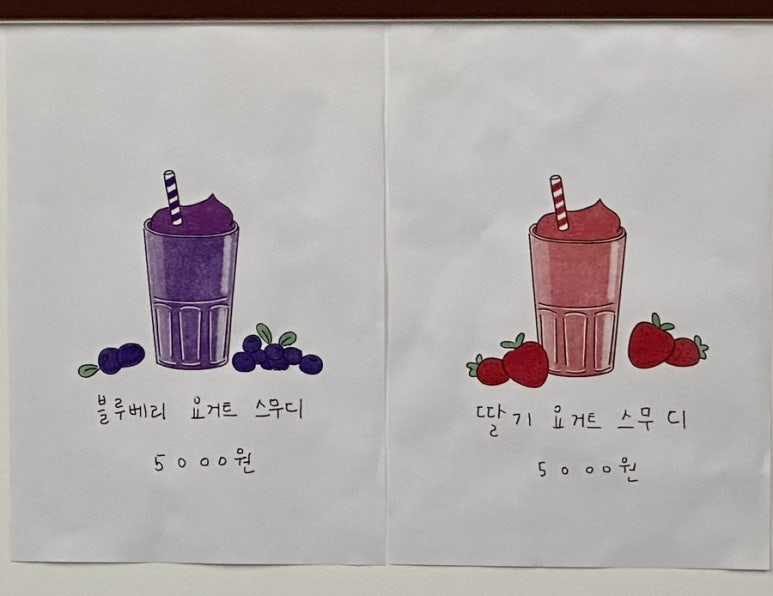 블루베리 요거트 스무디
5000원
딸기 요거트 스무디
5000원